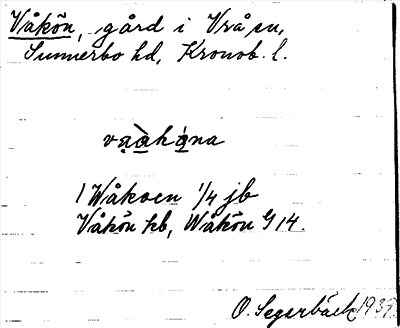 Våkön, gård i Vrå sn,
Sunnerbo hd, Kronob. l.
1 Wåkoen 1/4 jb
Våkön kb, Wåkön G 14.
O. Segerbäck